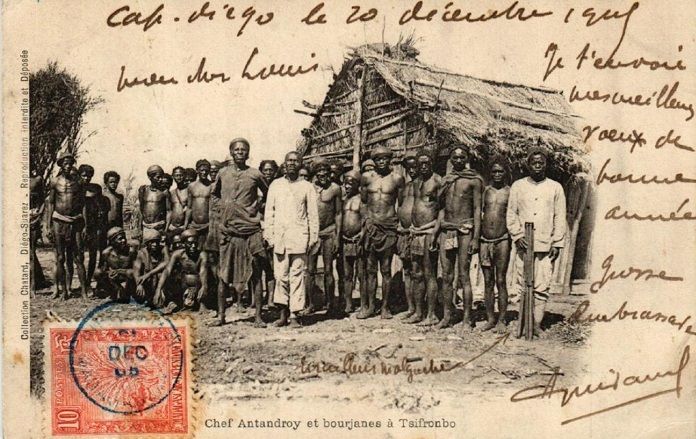 Cap-Diego le 20 décembre 1905
mon cher Louis
Je t'envoie
mes meilleurs
vœux de
bonne
année
Grosse
Embrassade
tirailleurs malgache
Collection Chatard, Diégo-Suarez - Reproduction Interdite et Déposée
DEC
05
10
Chef Antandroy et bourjanes à Tsifronbo